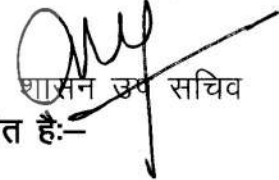 शासन उप सचिव
त है:–